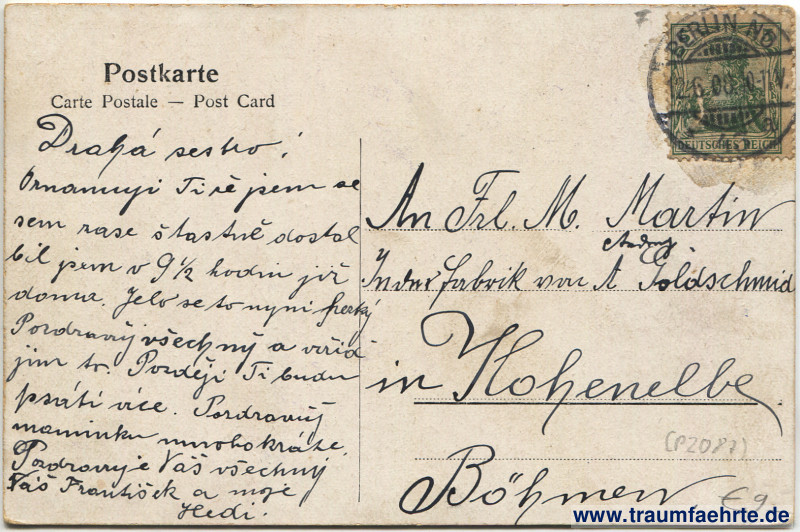 Postkarte
Carte Postale — Post Card
Drahá sestro!
Oznamuji Ti že jsem se
sem zase štastně dostal
bil jsem v 9½ hodin již
doma. Jelo se to nyni hezky
Pozdravuj všechny a viřiď
jim to. Později Ti budu
psáti více. Pozdravuj
maminku mnohokráte.
Pozdravuje Váš všechny
Váš František a moje
Hedi.
BERLIN NO
2.6.08. 10-11V.
DEUTSCHES REICH
An Frl. M. Martin
fabrik von A Goldschmid
in Hohenelbe
Böhmen
(P2087)
€9.
www.traumfaehrte.de